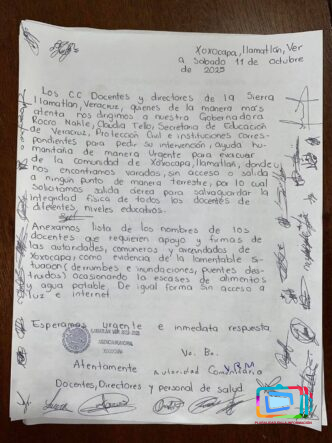 Xoxocapa, Ilamatlan, Ver
a Sabado 11 de Octubre
de 2025
Los C.C Docentes y directores de la Sierra
Ilamatlan, Veracruz, quienes de la manera mas
atenta nos dirigimos a nuestra Gobernadora
Rocio Nahle, Claudia Tello, Secretaria de Educacion
de Veracruz, Protección Civil e instituciones corres-
pondientes para pedir su intervención, ayuda hu-
manitaria de manera Urgente para evacuar
de la comunidad de Xoxocapa, Ilamatlan, donde
nos encontramos varados, sin acceso o salida
a ningún punto de manera terrestre, por lo cual
solicitamos salida aérea para salvaguardar la
integridad física de todos los docentes de
diferentes niveles educativos.
Anexamos lista de los nombres de los
docentes que requieren apoyo y firmas de
las autoridades, comuneros y avecindados de
Xoxocapa, como evidencia de la lamentable si-
tuación (derrumbes e inundaciones, puentes des-
truidos) ocasionando la escases de alimentos
y agua potable. De igual forma sin acceso a
luz e internet.
Esperamos urgente e inmediata respuesta
XOXOCAPA
Vo. Bo.
Atentamente
Autoridad Comunitaria
Docentes, Directores y personal de salud